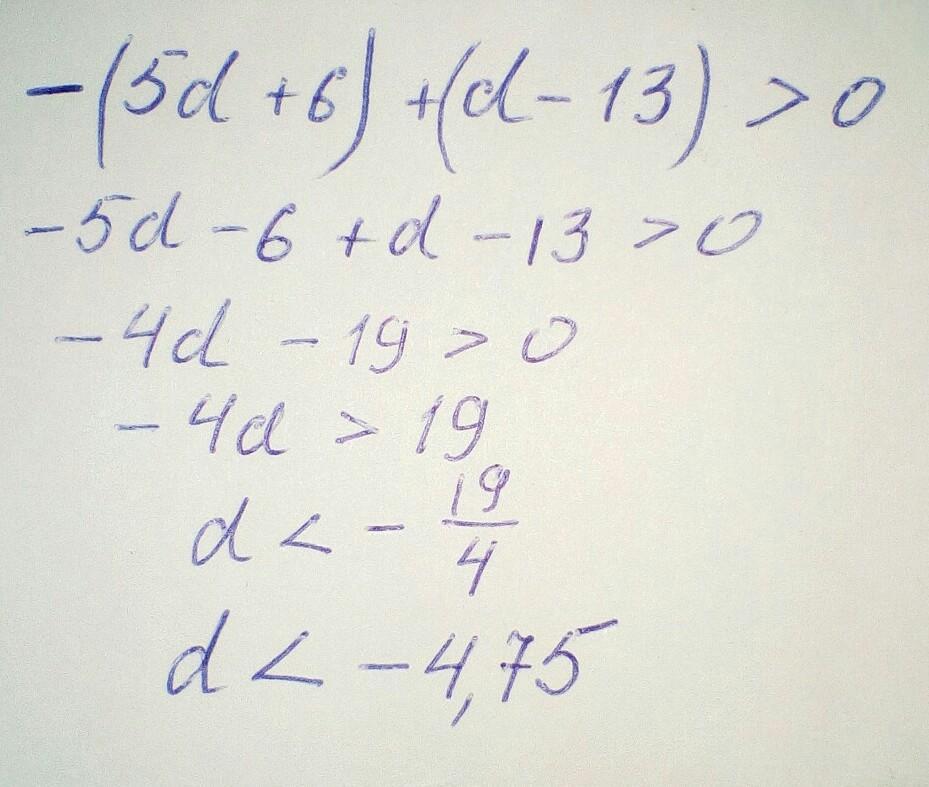 -(5d+6)+(d-13)>0
-5d-6+d-13>0
-4d-19>0
-4d>19
d<-19/4
d<-4,75